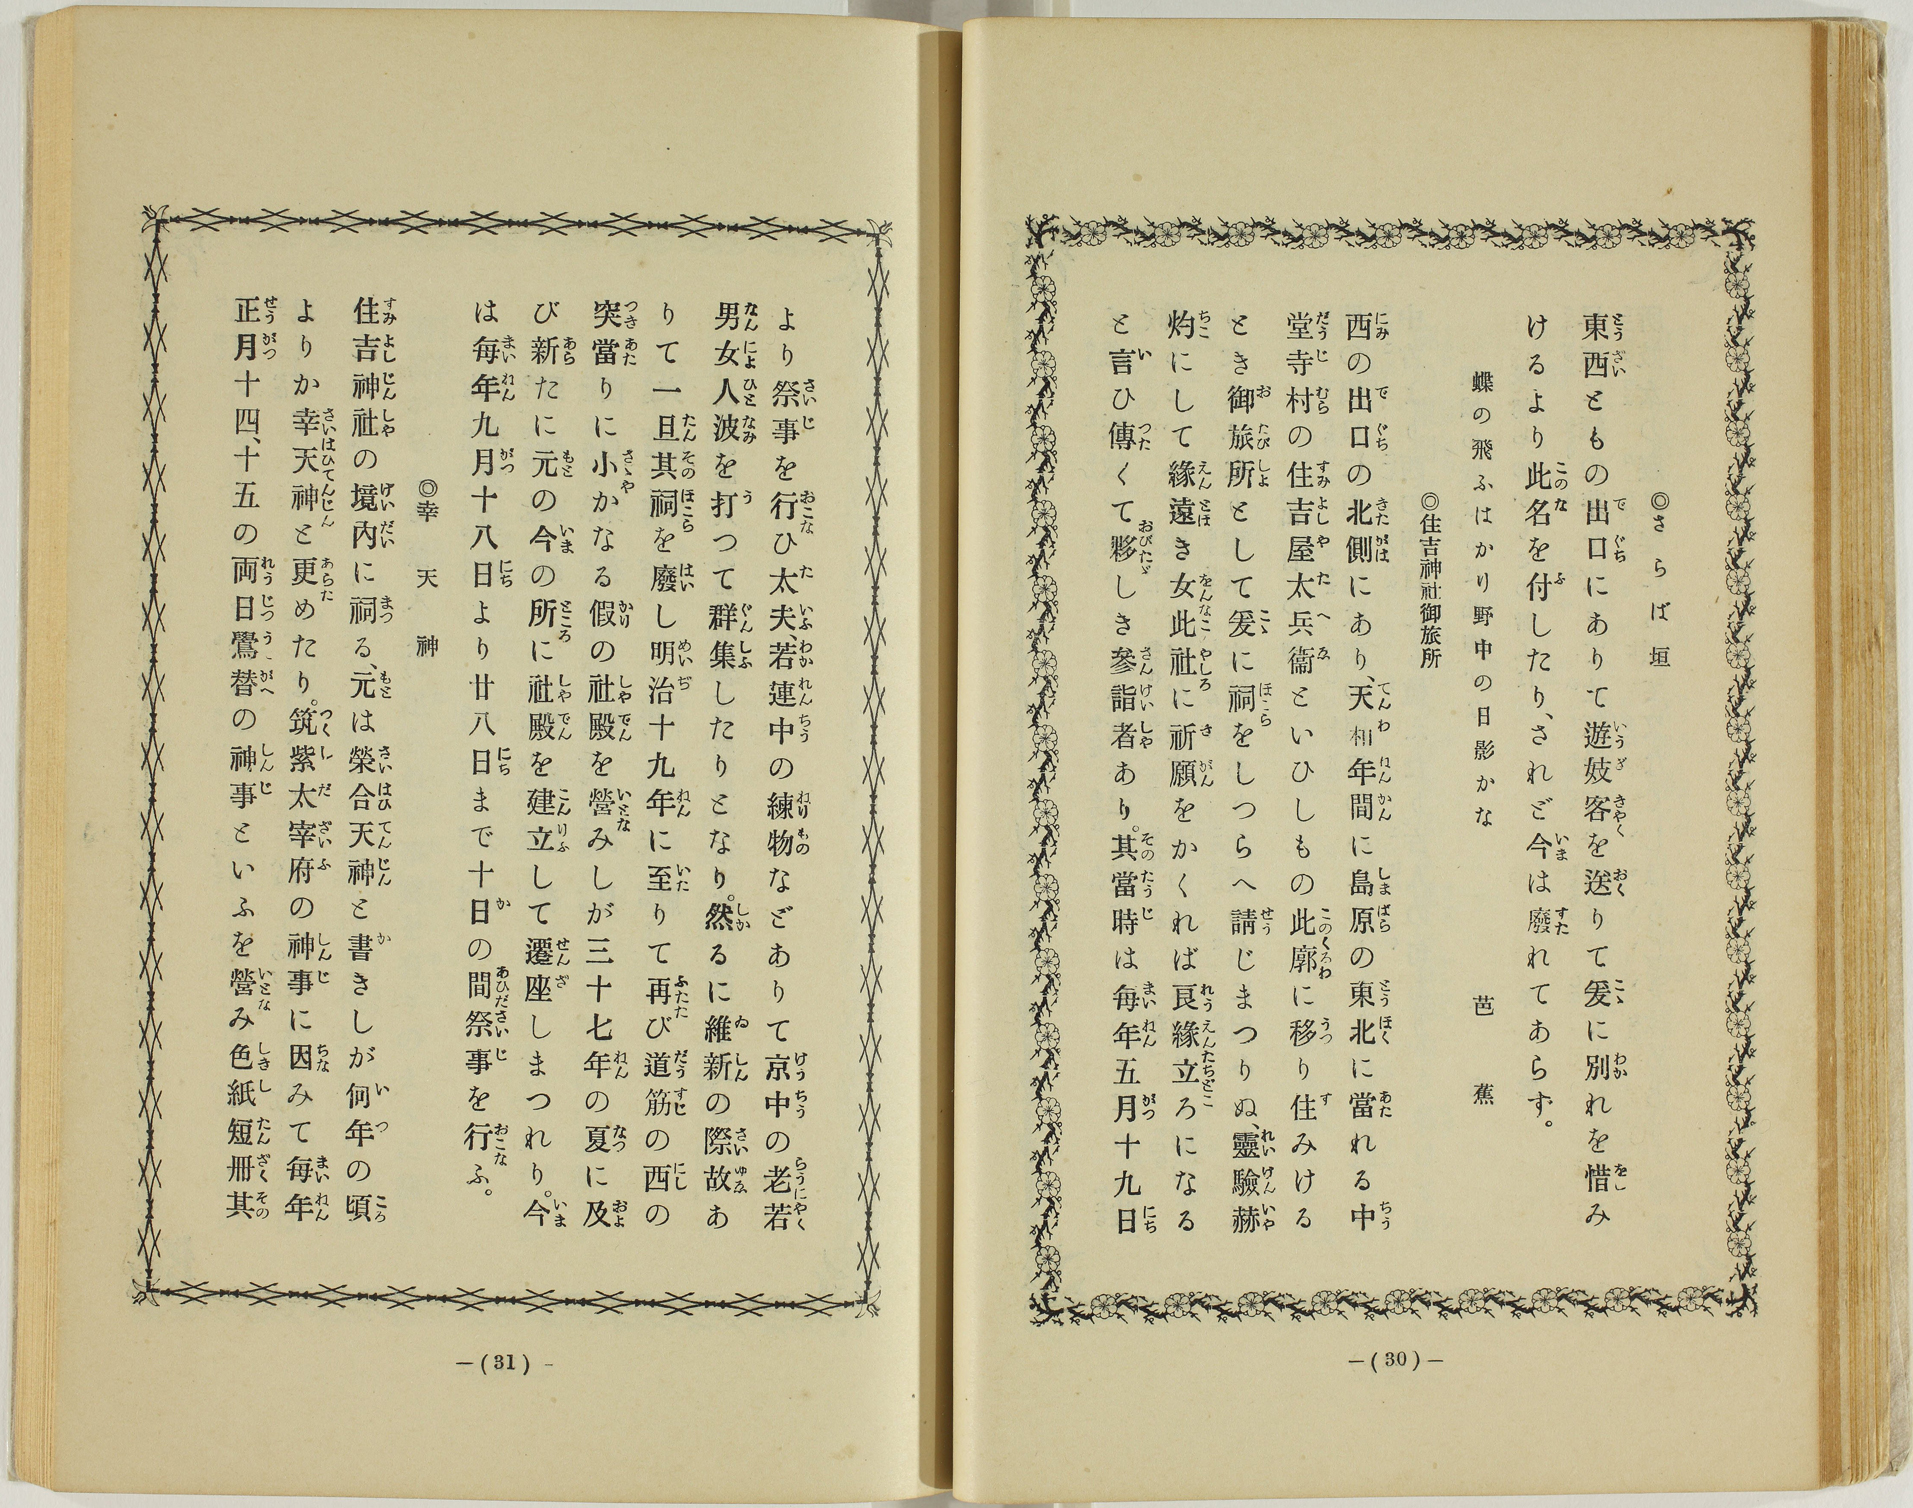 ◎さらば垣
東西ともの出口にありて遊妓客を送りて爰に別れを惜み
けるより此名を付したり、されど今は廢れてあらず。
蝶の飛ふはかり野中の日影かな　芭蕉
◎住吉神社御旅所
西の出口の北側にあり、天和年間に島原の東北に當れる中
堂寺村の住吉屋太兵衞といひしもの此廓に移り住みける
とき御旅所として爰に祠をしつらへ請じまつりぬ、靈驗赫
灼にして緣遠き女此社に祈願をかくれば良緣立ろになる
と言ひ傳くて夥しき參詣者あり。其當時は每年五月十九日
―(30)―
より祭事を行ひ太夫、若連中の練物などありて京中の老若
男女人波を打つて群集したりとなり。然るに維新の際故あ
りて一旦其祠を廢し明治十九年に至りて再び道筋の西の
突當りに小かなる假の社殿を營みしが三十七年の夏に及
び新たに元の今の所に社殿を建立して遷座しまつれり。今
は每年九月十八日より廿八日まで十日の間祭事を行ふ。
◎幸天神
住吉神社の境內に祠る、元は榮合天神と書きしが何年の頃
よりか幸天神と更めたり。筑紫太宰府の神事に因みて每年
正月十四、十五の両日鷽替の神事といふを營み色紙短冊其
―(31)-